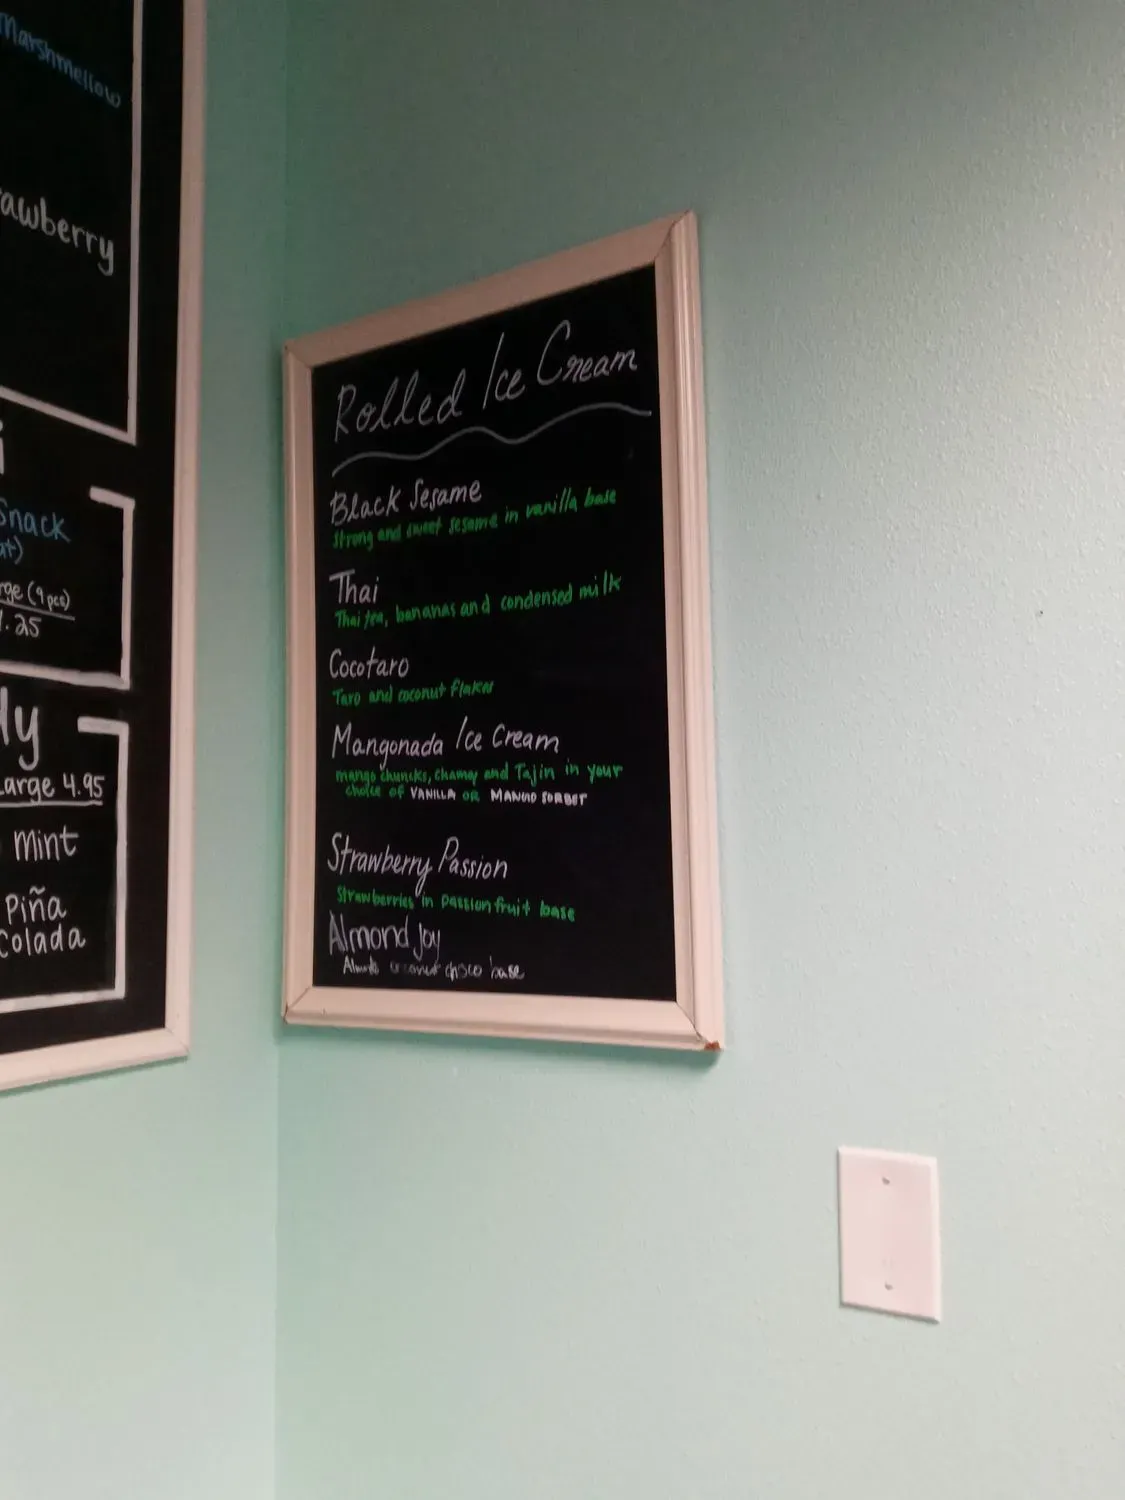 Marshmellow
awberry
i
Snack
at)
rge (9 pcs)
.25
ly
Large 4.95
mint
Piña
Colada
Rolled Ice Cream
Black Sesame
Strong and sweet sesame in vanilla base
Thai
Thai tea, bananas and condensed milk
Cocotaro
Taro and coconut flakes
Mangonada Ice Cream
mango chuncks, chamoy and Tajin in your
choice of VANILLA OR MANGO SORBET
Strawberry Passion
Strawberries in passion fruit base
Almond Joy
coconut choco base